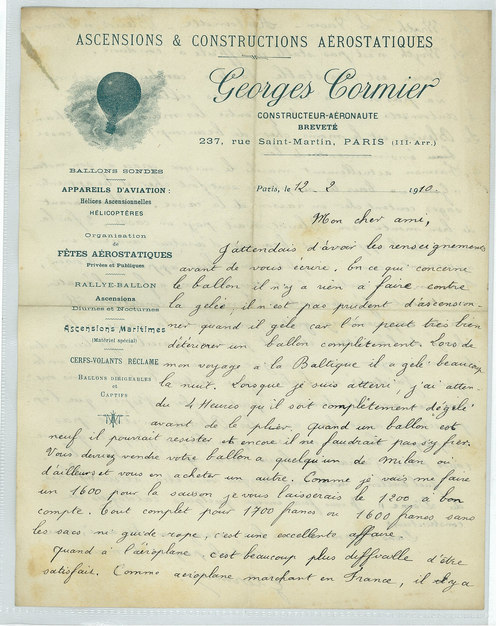 ASCENSIONS & CONSTRUCTIONS AÉROSTATIQUES
Georges Cormier
CONSTRUCTEUR-AÉRONAUTE
BREVETÉ
237, rue Saint-Martin, PARIS (III· Arr.)
BALLONS SONDES
APPAREILS D'AVIATION :
Hélices Ascensionnelles
HÉLICOPTÈRES
Organisation
de
FÊTES AÉROSTATIQUES
Privées et Publiques
RALLYE-BALLON
Ascensions
Diurnes et Nocturnes
Ascensions Maritimes
(Matériel spécial)
CERFS-VOLANTS RÉCLAME
BALLONS DIRIGEABLES
et
CAPTIFS
Paris, le 12 - 2 1910.
Mon cher ami,
J'attendais d'avoir les renseignements
avant de vous écrire. En ce qui concerne
le ballon il n'y a rien à faire contre
la gelée, il n'est pas prudent d'ascension-
ner quand il gèle car l'on peut très bien
détériorer un ballon complètement. Lors de
mon voyage à la Baltique il a gelé beaucoup
la nuit. Lorsque je suis atterri, j'ai atten-
du 4 Heures qu'il soit complètement dégelé
avant de le plier, quand un ballon est
neuf il pourrait resister et encore il ne faudrait pas s'y fier.
Vous devrez vendre votre ballon a quelqu'un de Milan ou
d'ailleurs et vous en acheter un autre. Comme je vais me faire
un 1600 pour la saison je vous laisserais le 1200 a bon
compte. tout complet pour 1700 francs ou 1600 francs sans
les sacs ni guide rope, c'est une excellente affaire.
Quand à l'aéroplane c'est beaucoup plus difficile d'être
satisfait. Comme aeroplane marchant en France, il y a